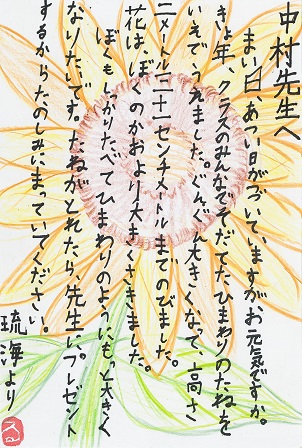 中村先生へ
まい日、あつい日がつづいていますがお元気ですか。
きょ年、クラスのみんなでそだてたひまわりのたねを
いえで、うえました。ぐんぐん大きくなって、高さ
二メートル二十一センチメートルまでのびました。
花は、ぼくのかおより大きくさきました。
ぼくもしっかりたべてひまわりのように、もっと大きく
なりたいです。たねがとれたら、先生に、プレゼント
するからたのしみにまっていてください。
琉海より